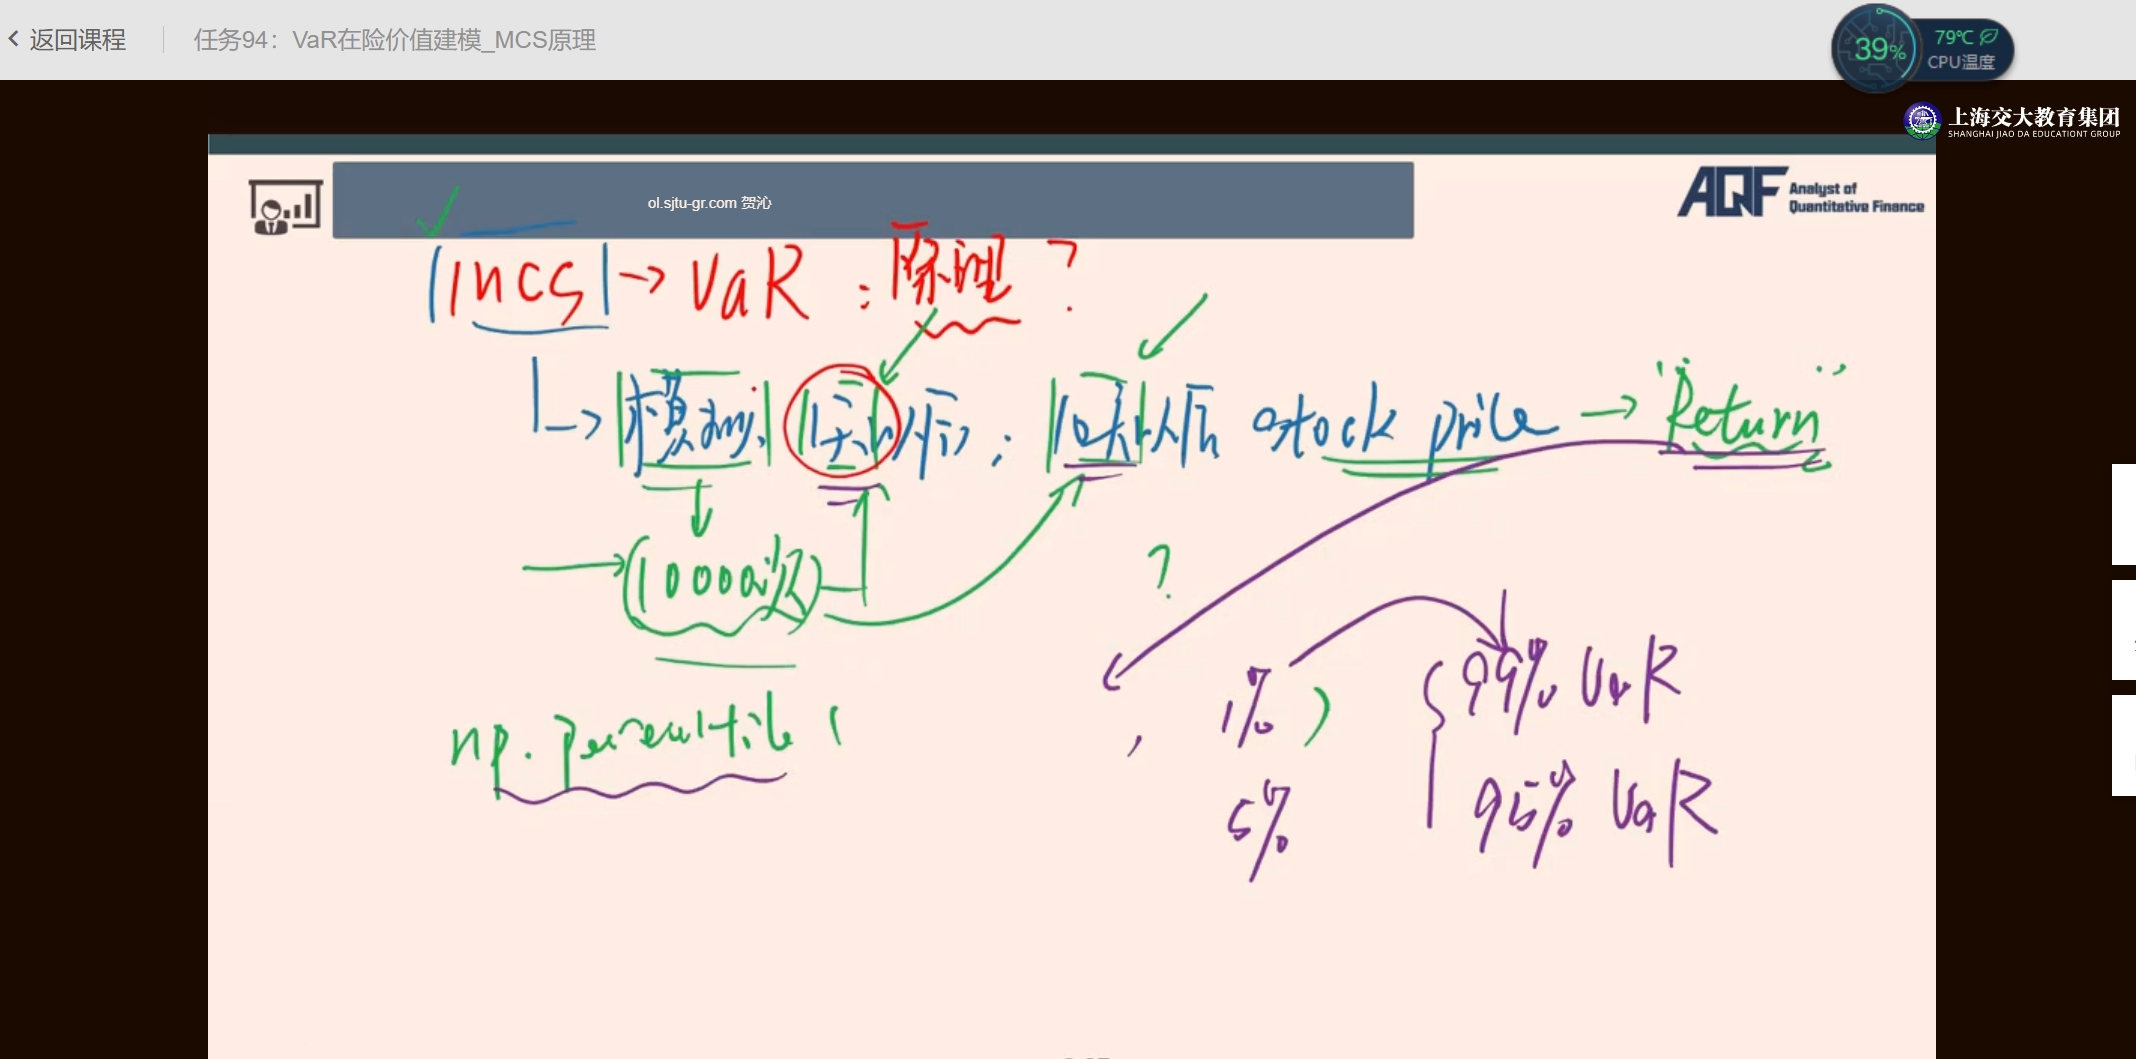 返回课程
任务94：VaR在险价值建模_MCS原理
39%
79℃
CPU温度
上海交大教育集团
SHANGHAI JIAO DA EDUCATIONT GROUP
ol.sjtu-gr.com 贺沁
AQF Analyst of
Quantitative Finance
MCS → VaR：原理？
模拟 1天后；10天后 stock price → "Return"
10000次
?
np.percentile ( , 1% )
5%
99% VaR
95% VaR